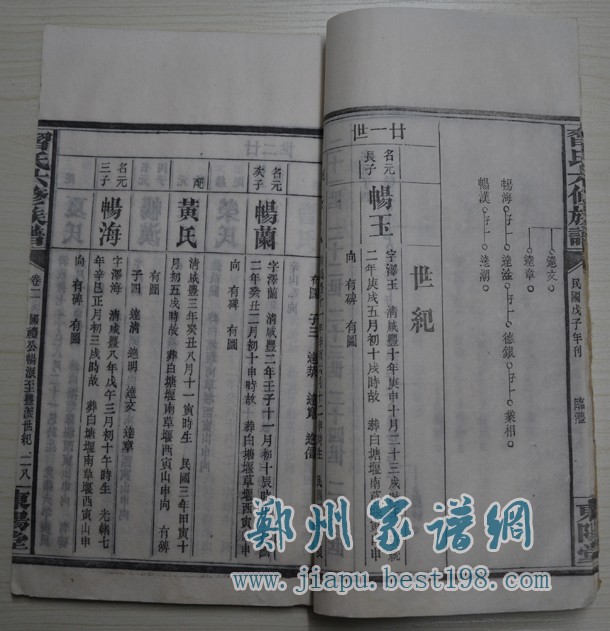 習氏六修族譜
民國戊子年刊 臨澧
東陽堂
達文
達章
暢海 子一 達滋 子一 德銀 子一 業相
暢漢 子一 達湖
世紀
廿一世
名元
長子
暢玉
字澤玉 清咸豐十年庚申十月二十三戌
二年庚戌五月初十戌時故 葬白塘堰南草
向 有碑 有圖
廿二世
子四 子三
名元
次子
暢蘭
字澤蘭 清咸豐二年壬子十一月初十辰時
二年癸丑二月初十申時故 葬白塘堰南草堰西寅山申
向 有碑 有圖
配
黃氏
清咸豐三年癸丑八月十一寅時生 民國三年甲寅十
月初五戌時故 葬白塘堰南草堰西寅山申向 有碑
有圖
子四 達清 達明 達文 達章
名元
三子
暢海
字澤海 清咸豐八年戊午三月初十午時生 光緒七
年辛巳正月初三戌時故 葬白塘堰南草堰西寅山申
向 有碑 有圖
習氏六修族譜
卷二
世紀 二八
東陽堂
鄭州家譜網
www.jiapu.best198.com